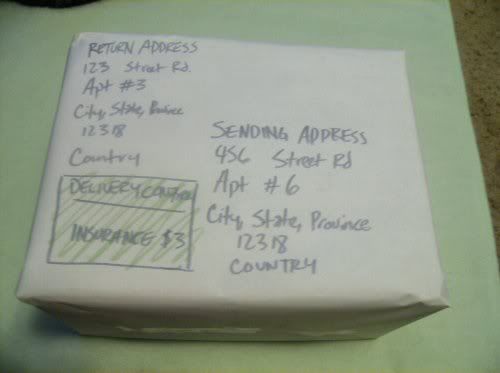 RETURN ADDRESS
123 Street Rd.
Apt #3
City, State, Province
12318
Country
DELIVERY CONFIRM
INSURANCE $3
SENDING ADDRESS
456 Street Rd
Apt #6
City, State, Province
12318
COUNTRY